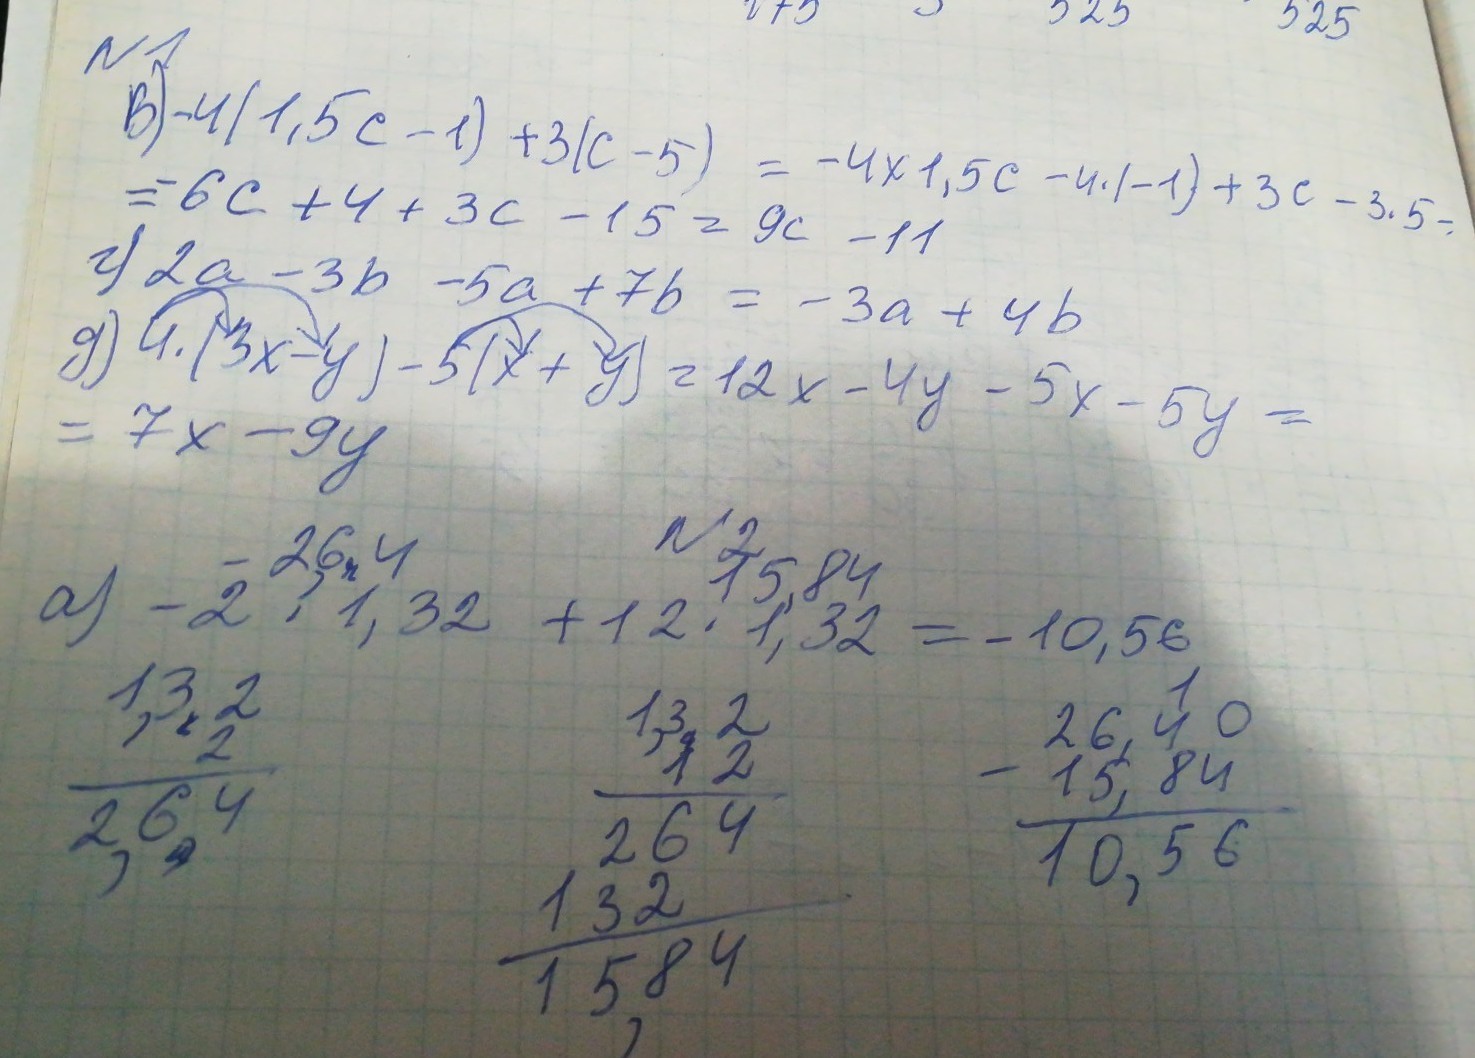 175 5 525 525
N1
в) -4(1,5c - 1) + 3(c - 5) = -4×1,5c - 4·(-1) + 3c - 3·5 =
= -6c + 4 + 3c - 15 = 9c - 11
г) 2a - 3b - 5a + 7b = -3a + 4b
д) 4·(3x - y) - 5(x + y) = 12x - 4y - 5x - 5y =
= 7x - 9y
N2
- 26,4 15,84
а) -2 · 1,32 + 12 · 1,32 = -10,56
1,32
2
2,64
1,32
12
264
132
15,84
1
26,40
- 15,84
10,56